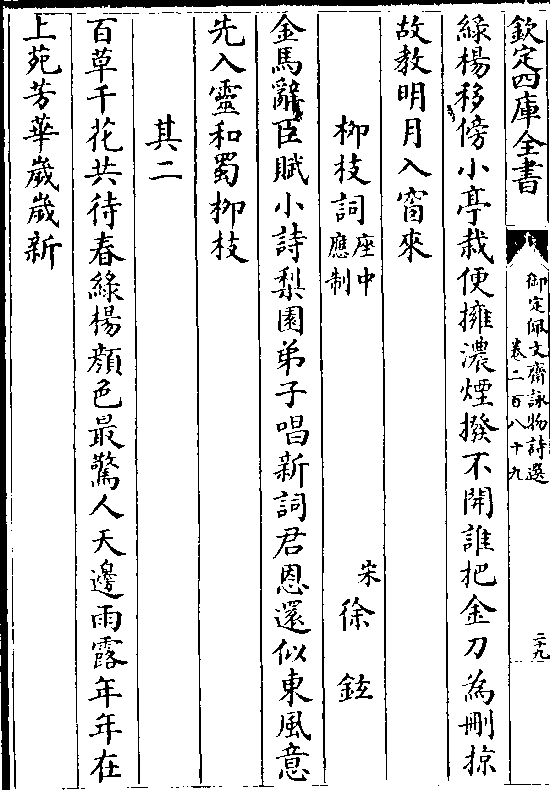 欽定四庫全書
御定佩文齋詠物詩選
卷二百八十九
二十九
綠楊移傍小亭栽便擁濃煙撥不開誰把金刀為刪掠
故教明月入窗來
柳枝詞座中應制
宋徐鉉
金馬辭臣賦小詩梨園弟子唱新詞君恩還似東風意
先入靈和蜀柳枝
其二
百草千花共待春綠楊顏色最驚人天邊雨露年年在
上苑芳華歲歲新